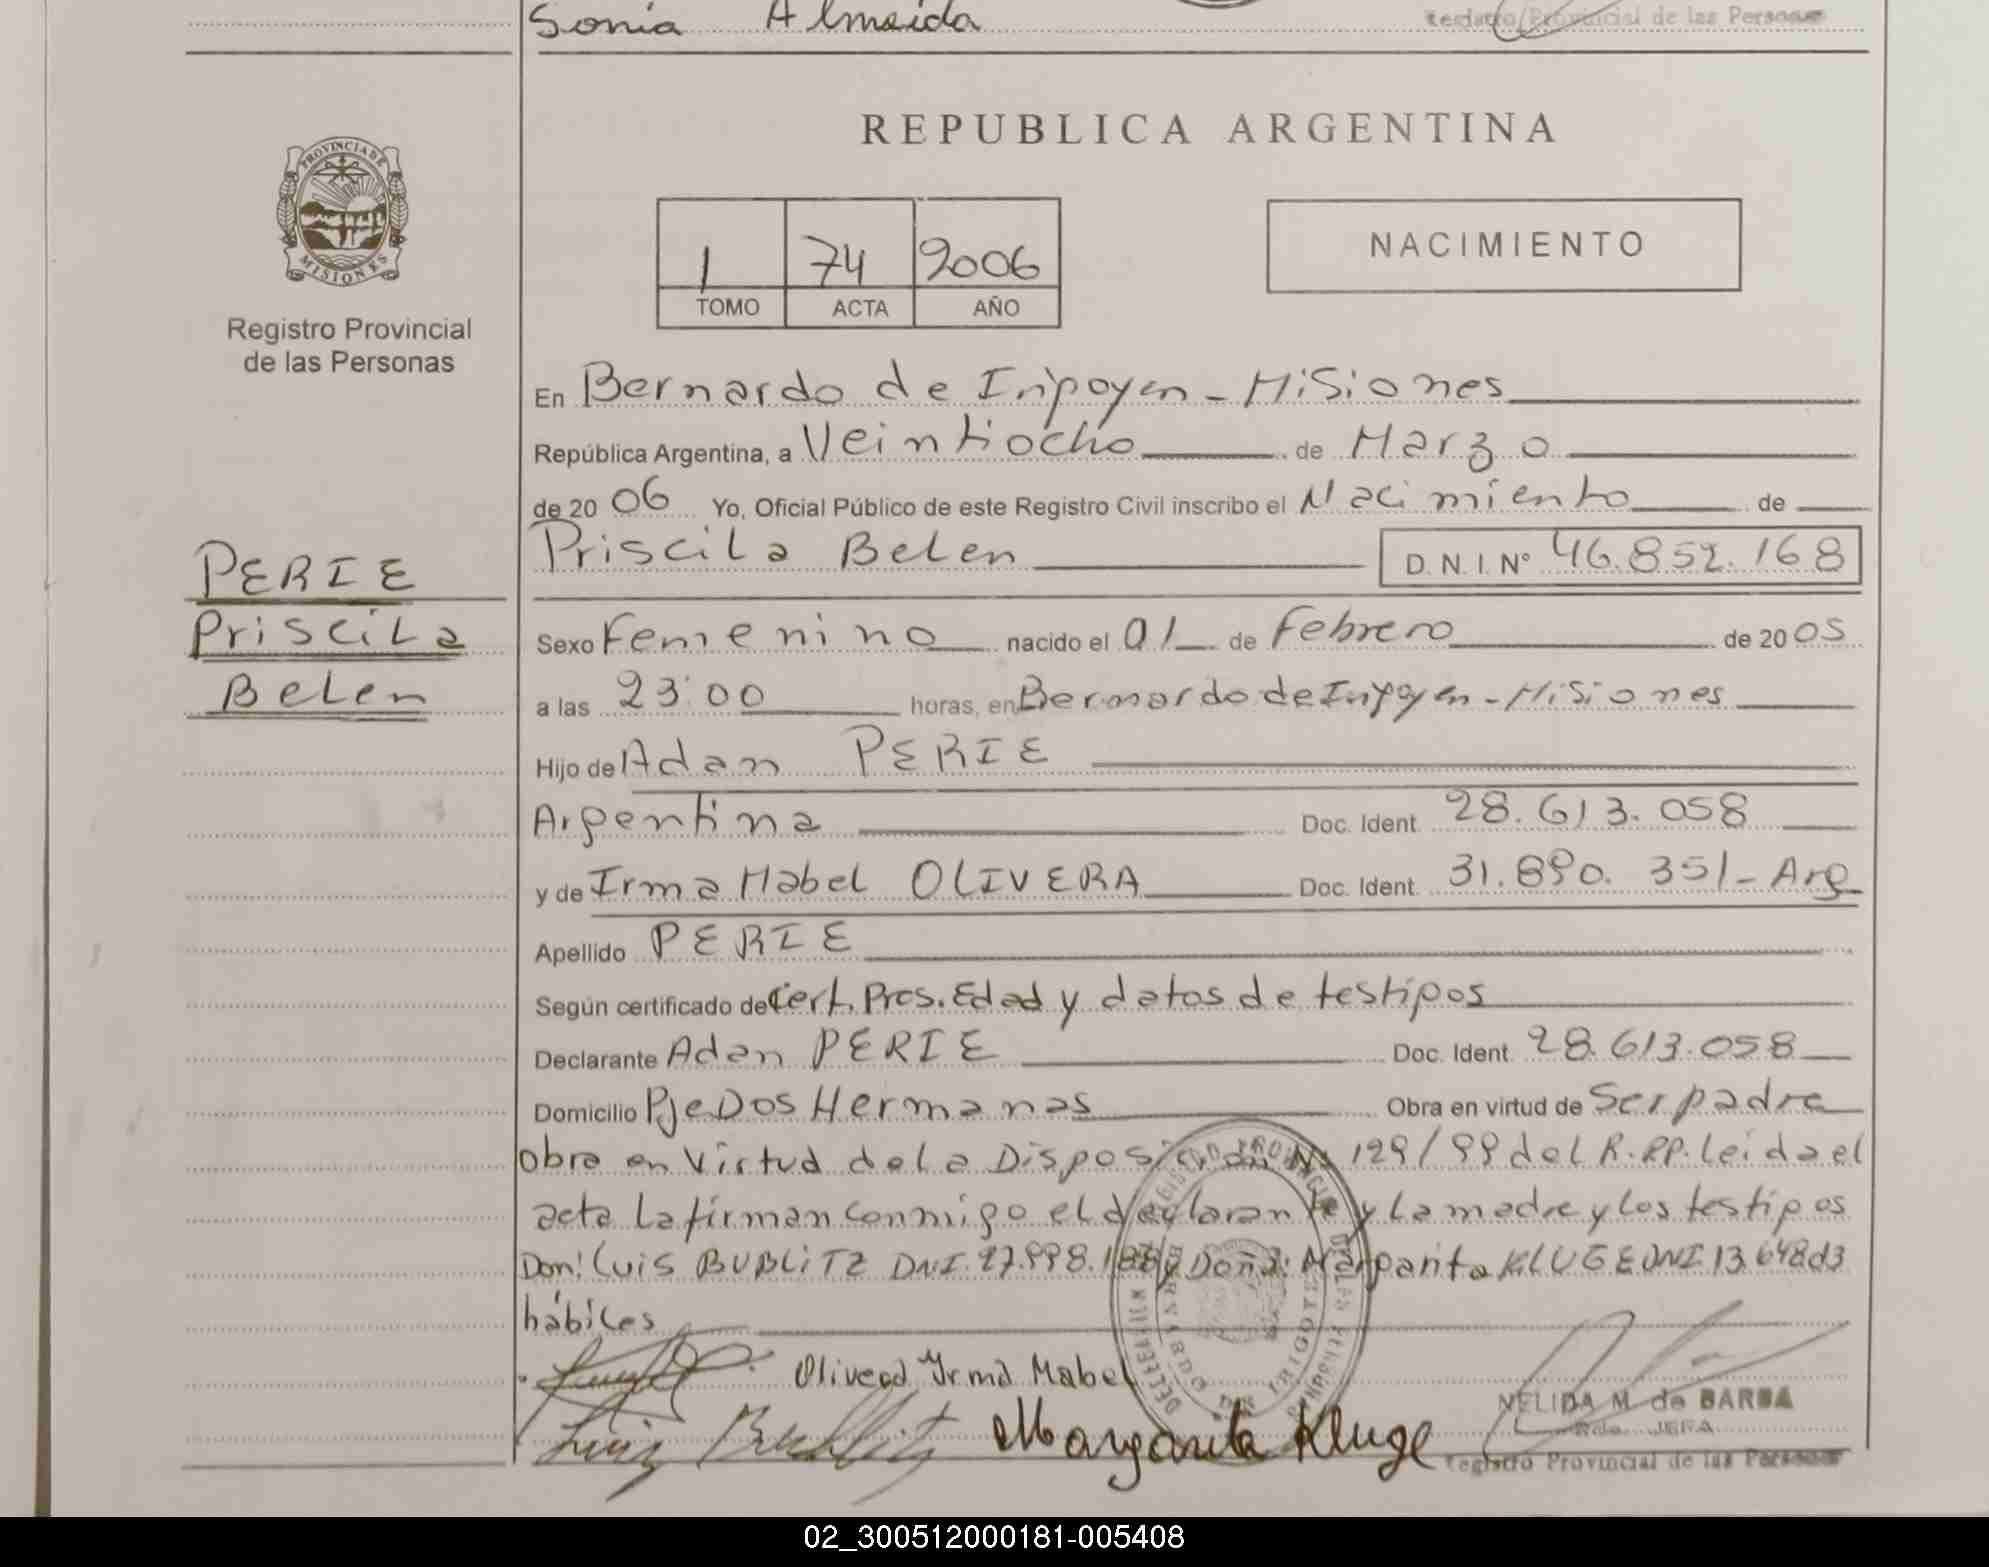 Sonia Almeida
Registro Provincial de las Personas
PROVINCIA DE
MISIONES
Registro Provincial
de las Personas
REPUBLICA ARGENTINA
1 74 2006
TOMO ACTA AÑO
NACIMIENTO
PERIE
Priscila
Belen
En Bernardo de Irigoyen - Misiones
República Argentina, a Veintiocho de Marzo
de 20 06 Yo, Oficial Público de este Registro Civil inscribo el Nacimiento de
Priscila Belen D.N.I. Nº 46.852.168
Sexo Femenino nacido el 01 de Febrero de 20 05
a las 23:00 horas, en Bernardo de Irigoyen - Misiones
Hijo de Adan PERIE
Argentina Doc. Ident. 28.613.058
y de Irma Mabel OLIVERA Doc. Ident. 31.890.351 - Arg
Apellido PERIE
Según certificado de Cert. Pres. Edad y datos de testigos
Declarante Adan PERIE Doc. Ident. 28.613.058
Domicilio Pje Dos Hermanas Obra en virtud de Ser padre
obra en Virtud de la Disposición Nº 129/99 del R.PP. Leida el
acta la firman conmigo el declarante y la madre y los testigos
Don: Luis BUBLITZ DNI. 27.998.188 y Doña: Margarita KLUGE DNI 13.648
hábiles
Olivera Yrma Mabel
Luis Bublitz Margarita Kluge
NELIDA M. de BARBA
JEFA
Registro Provincial de las Personas
02_300512000181-005408